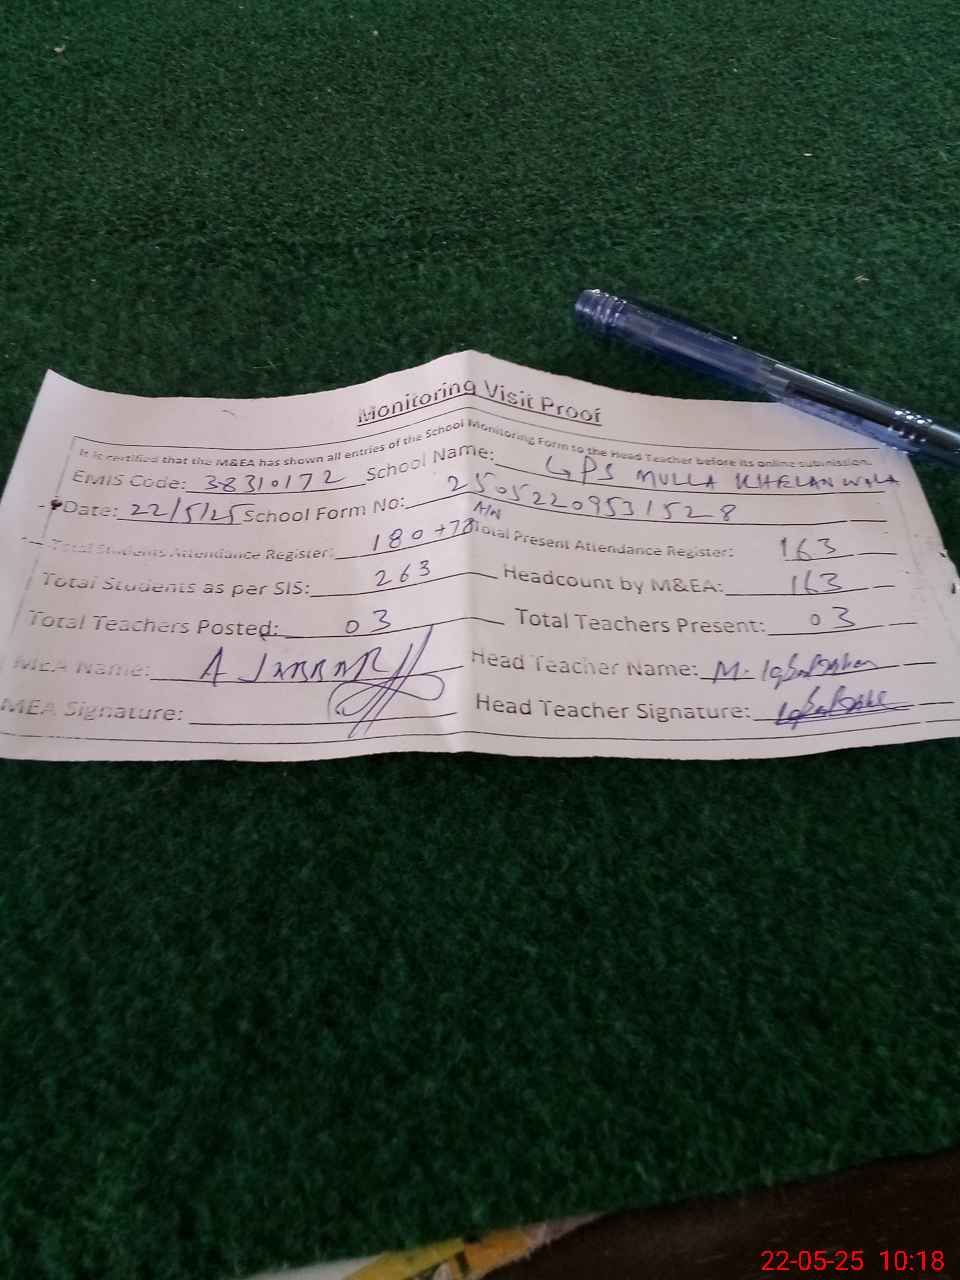 Monitoring Visit Proof
It is certified that the M&EA has shown all entries of the School Monitoring Form to the Head Teacher before its online submission.
EMIS Code: 38310172 School Name: GPS MULLA KHELAN WALA
Date: 22/5/25 School Form No: 25052209531528
Total Students Attendance Register: 180+78 A/N Total Present Attendance Register: 163
Total Students as per SIS: 263 Headcount by M&EA: 163
Total Teachers Posted: 03 Total Teachers Present: 03
MEA Name: A JABBAR Head Teacher Name: M. Iqbal
MEA Signature: Head Teacher Signature:
22-05-25 10:18